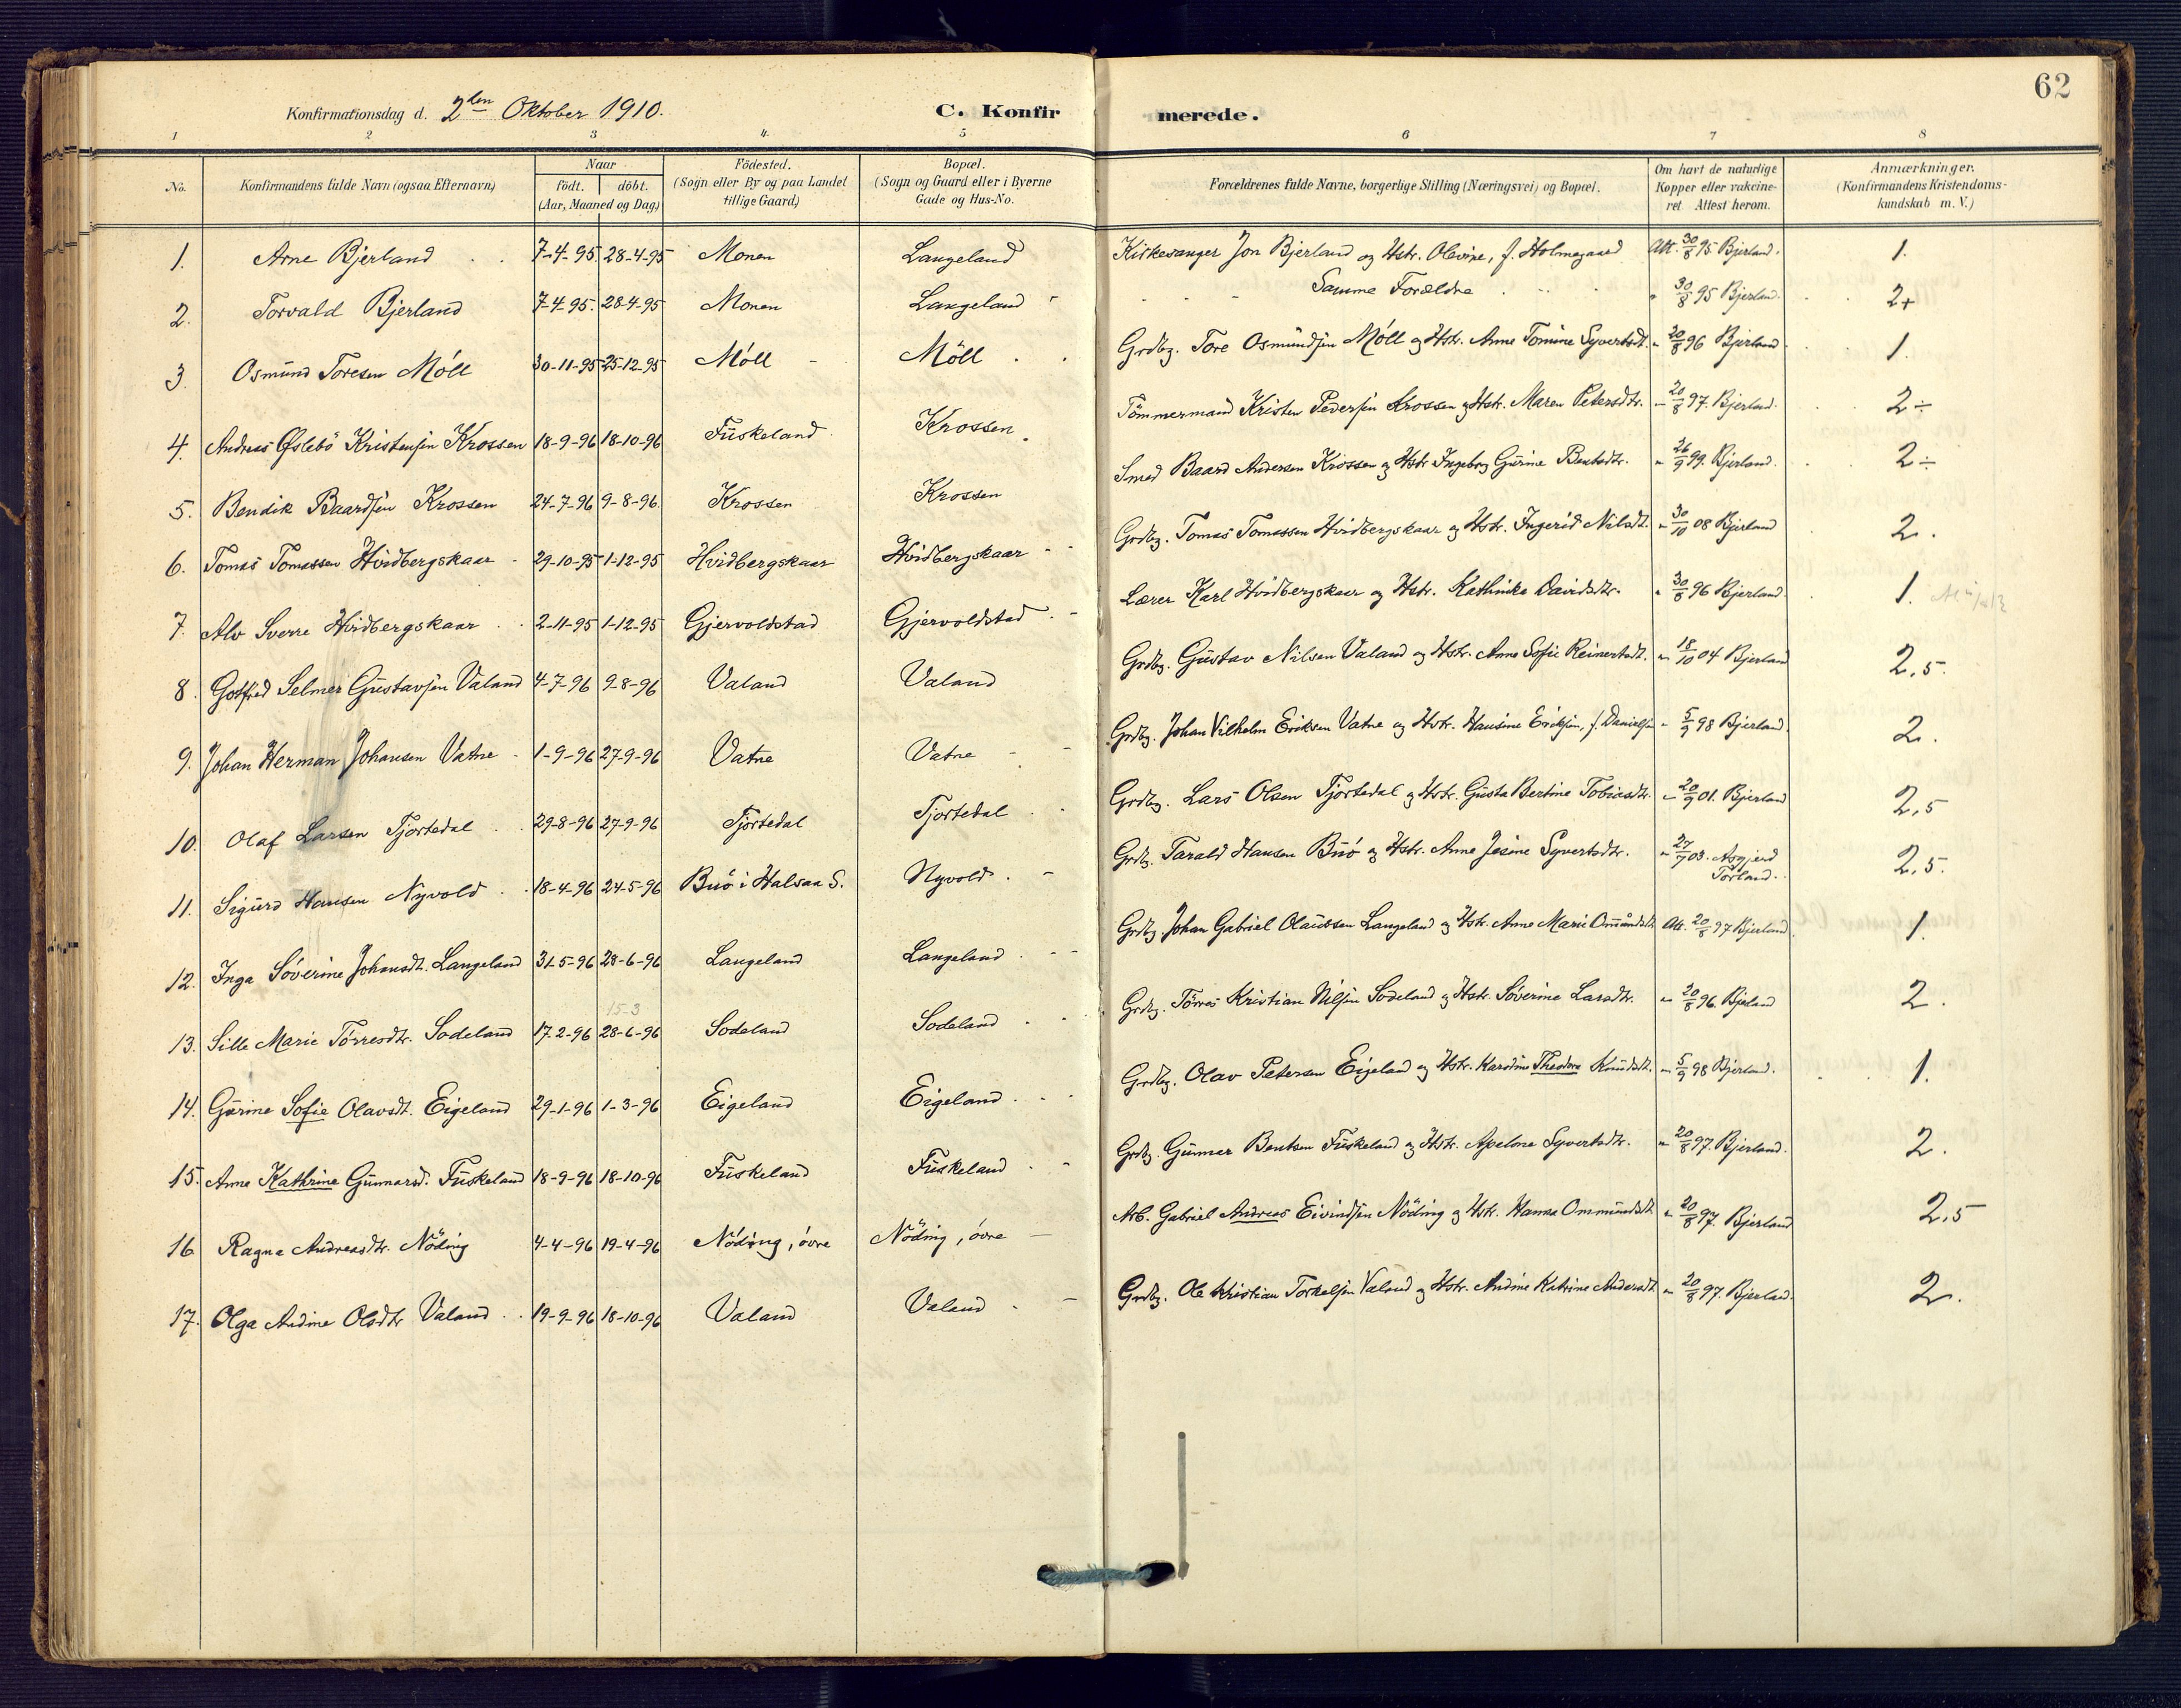 62
Konfirmationsdag d. 2den Oktober 1910. C. Konfirmerede.
1 2 3 4. 5 6 7 8
No. Konfirmandens fulde Navn (ogsaa Efternavn) Naar født. døbt. (Aar, Maaned og Dag) Födested. (Sogn eller By og paa Landet tillige Gaard) Bopæl. (Sogn og Gaard eller i Byerne Gade og Hus-No. Forældrenes fulde Navne, borgerlige Stilling (Næringsvei) og Bopæl. Om havt de naturlige Kopper eller vakcineret Attest herom. Anmærkninger. (Konfirmandens Kristendomskundskab m. V.)
1. Arne Bjerland 7-4-95. 28-4-95 Monen Langeland Kirkesanger Jon Bjerland og Hstr. Olevine, f. Holmegaard Att. 30/8 95 Bjerland. 1.
2. Torvald Bjerland 7-4-95. 28-4-95 Monen Langeland Samme Forældre " 30/8 95 Bjerland. 2+
3. Osmund Toresen Möll 30-11-95 25-12-95 Möll Möll Grdbg. Tore Osmundsen Möll og Hstr. Anne Tomine Syvertsdt. " 20/8 96 Bjerland 1.
4. Andreas Øslebö Kristensen Krossen 18-9-96 18-10-96 Fuskeland Krossen Tömmermand Kristen Pedersen Krossen og Hstr. Maren Petersdtr. " 20/8 97. Bjerland. 2÷
5. Bendik Baardsen Krossen 24-7-96 9-8-96. Krossen Krossen Smed Baard Andersen Krossen og Hstr Ingeborg Gurine Bentsdtr. " 26/9 99. Bjerland. 2÷
6. Tomas Tomassen Hvidbergskaar 29-10-95 1-12-95 Hvidbergskaar Hvidbergskaar Grdbg. Tomas Tomassen Hvidbergskaar og Hstr. Ingerid Nilsdt. " 30/10 08 Bjerland 2.
7. Alv Sverre Hvidbergskaar 2-11-95 1-12-95 Gjervoldstad Gjervoldstad Lærer Karl Hvidbergskaar og Hstr. Kathinka Davidsdtr. " 30/8 96 Bjerland. 1.
8. Gotfred Selmer Gustavsen Valand 4-7-96 9-8-96 Valand Valand Grdbg. Gustav Nilsen Valand og Hstr. Anne Sofie Reinertsdt. " 18/10 04 Bjerland 2,5.
9. Johan Herman Johansen Vatne 1-9-96 27-9-96 Vatne Vatne Grdbg. Johan Vilhelm Eriksen Vatne og Hstr. Hansine Eriksen, f. Danielsen " 5/9 98 Bjerland. 2.
10. Olaf Larsen Tjortedal 29-8-96 27-9-96 Tjortedal Tjortedal Grdbg. Lars Olsen Tjortedal og Hstr. Gusta Bertine Tobiasdtr. " 20/9 01. Bjerland 2,5
11. Sigurd Hansen Nyvold 18-4-96 24-5-96 Buö i Halsaa S. Nyvold Grdbg. Tarald Hansen Buö og Hstr. Anne Jesine Syvertsdtr. " 27/7 03. Asgjerd Torland. 2,5.
12. Inga Söverine Johansdt. Langeland 31-5-96 28-6-96 Langeland Langeland Grdbg. Johan Gabriel Olaussen Langeland og Hstr. Anne Marie Omundsdt. Att. 20/8 97 Bjerland. 1.
15-3
13. Sille Marie Törresdtr. Sodeland 17-2-96 28-6-96 Sodeland Sodeland Grdbg. Törres Kristian Nilsen Sodeland og Hstr. Söverine Larsdtr. " 20/8 96. Bjerland 2.
14. Gurine Sofie Olavsdt. Eigeland 29-1-96 1-3-96 Eigeland Eigeland Grdbg. Olav Petersen Eigeland og Hstr. Karoline Theodora Knudsdt. " 5/9 98 Bjerland. 1.
15. Anne Kathrine Gunnarsd. Fuskeland 18-9-96 18-10-96 Fuskeland Fuskeland Grdbg. Gunnar Bentsen Fuskeland og Hstr. Apelone Syvertsdtr. " 20/8 97. Bjerland. 2.
16. Ragna Andreasdtr. Nöding 4-4-96 19-4-96 Nöding, övre Nöding, övre Arb. Gabriel Andreas Eivindsen Nöding og Hstr. Hanna Ommundsdt. " 20/8 97. Bjerland 2,5
17. Olga Andine Olsdtr Valand 19-9-96 18-10-96 Valand Valand Grdbg. Ole Kristian Torkelsen Valand og Hstr. Andine Katrine Andersdt. " 20/8 97. Bjerland. 2.